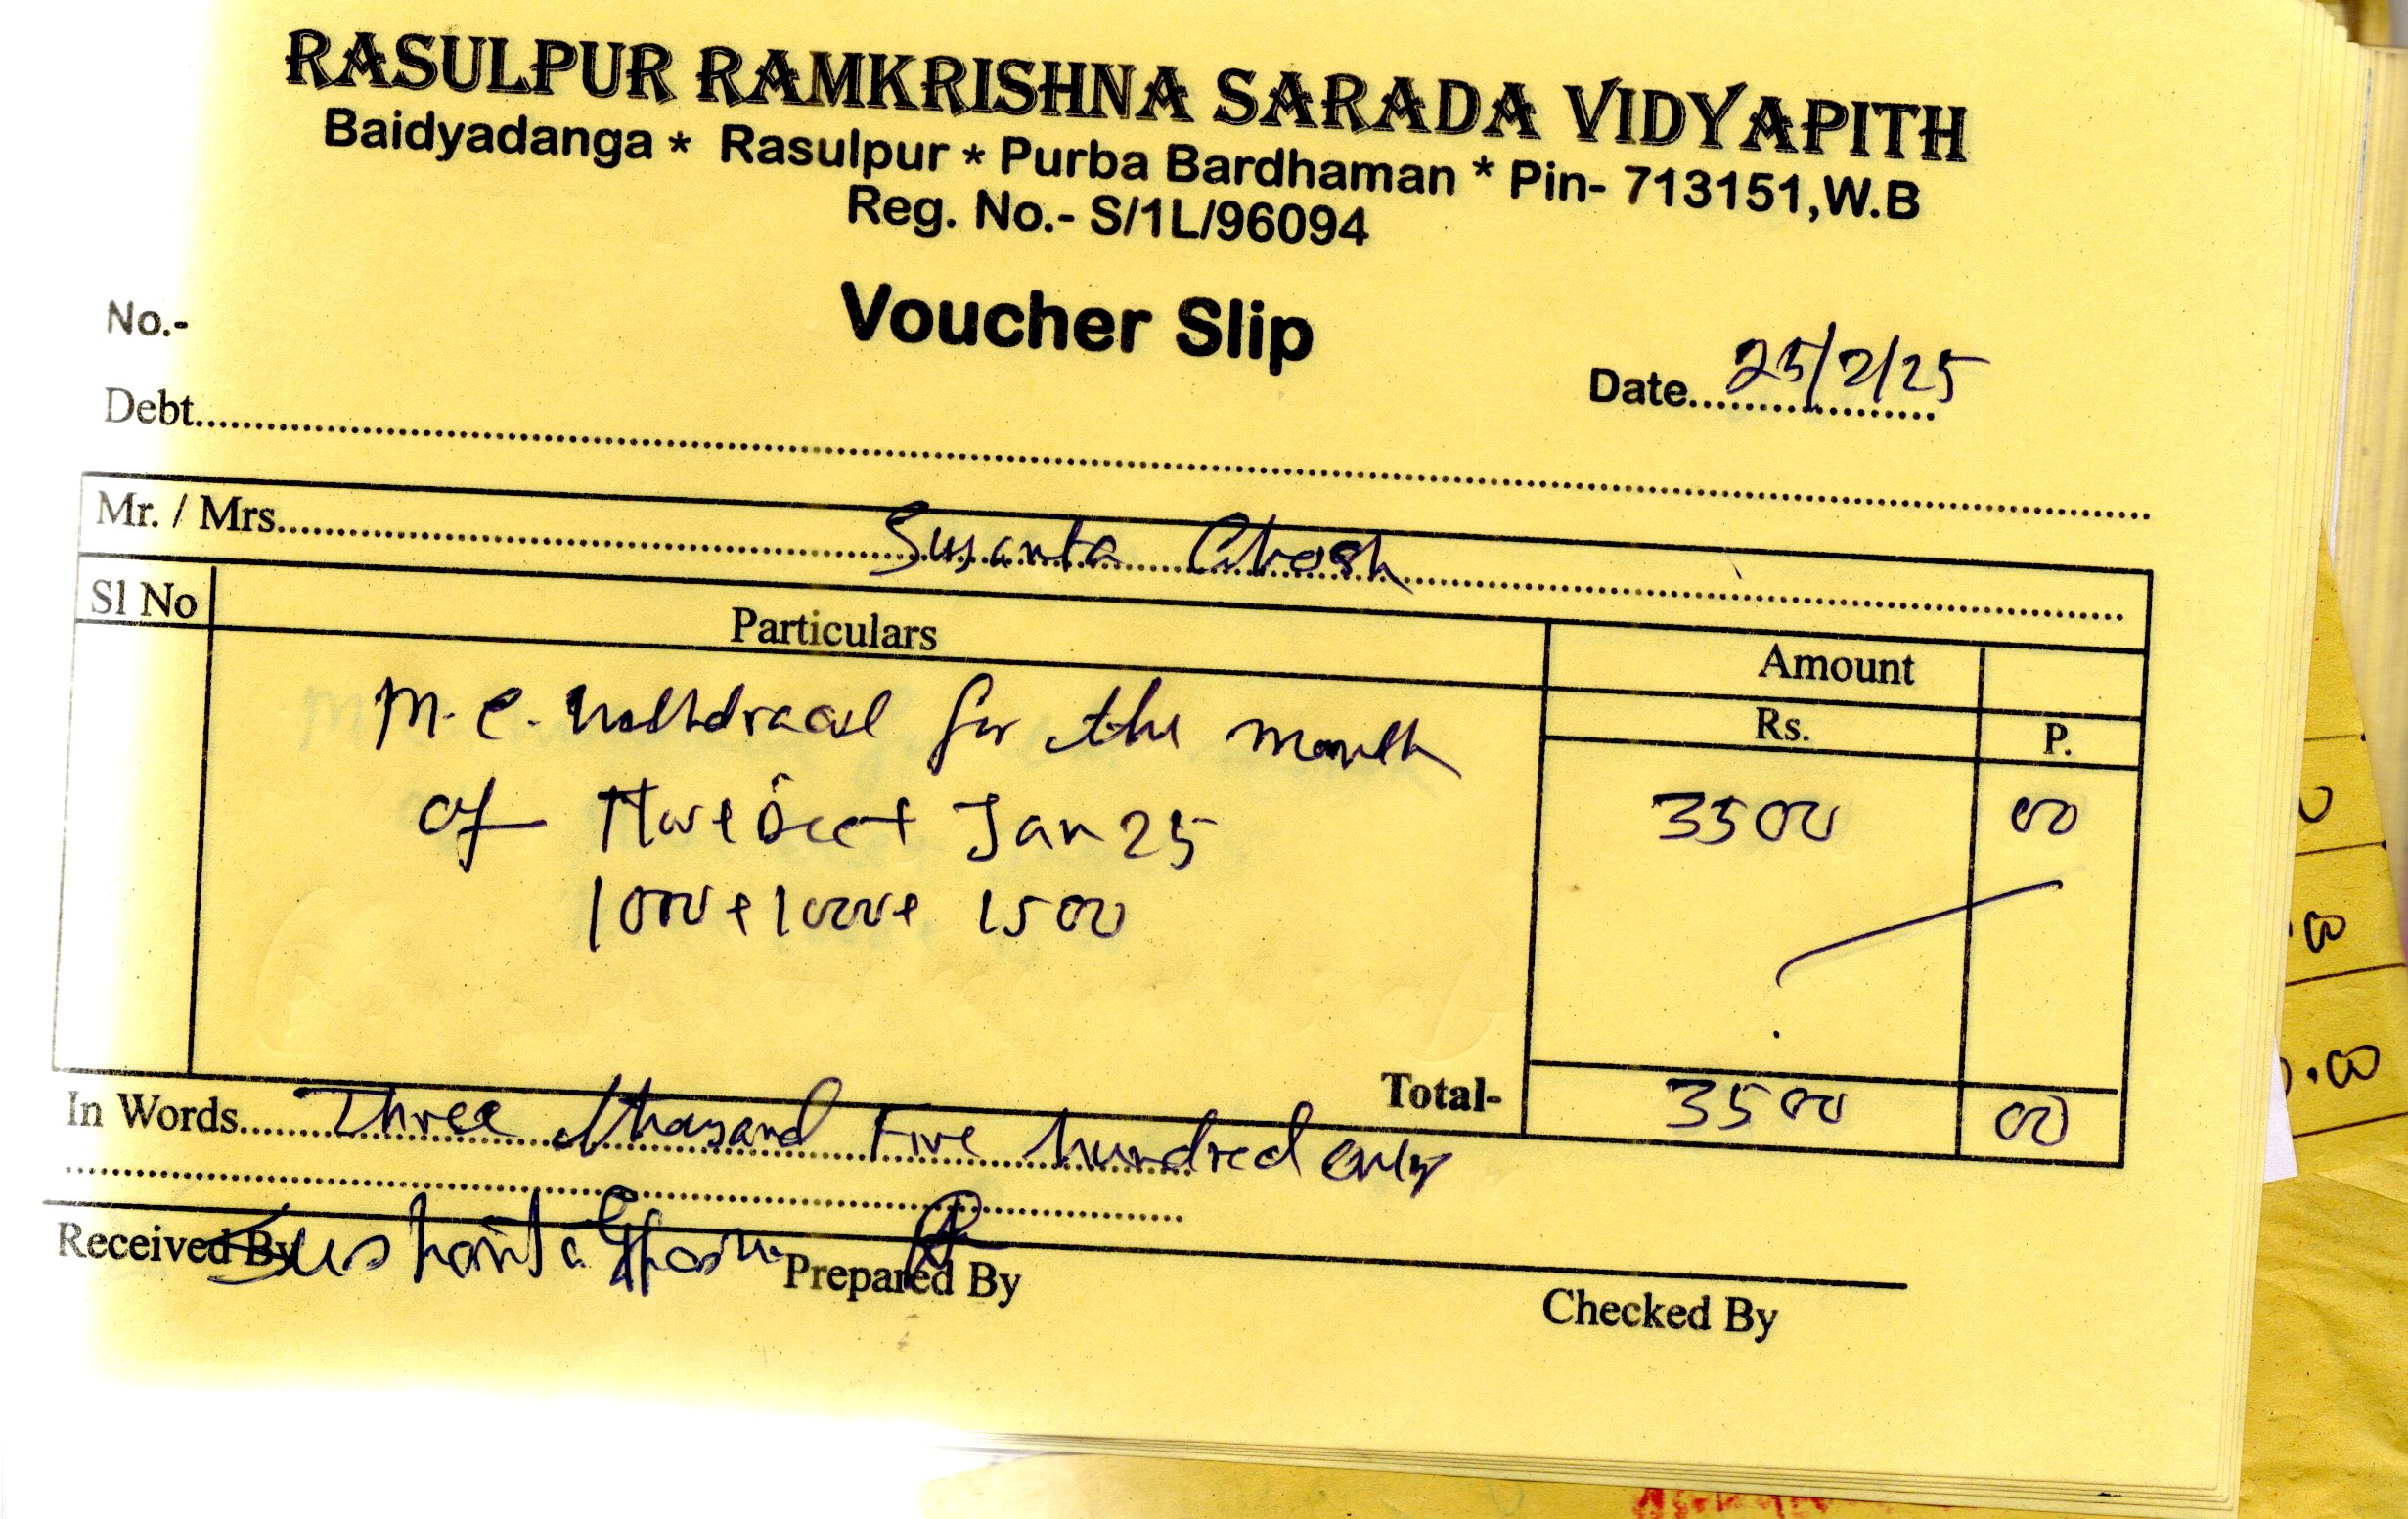 RASULPUR RAMKRISHNA SARADA VIDYAPITH
Baidyadanga * Rasulpur * Purba Bardhaman * Pin- 713151,W.B
Reg. No.- S/1L/96094
Voucher Slip
No.-
Date 25/2/25
Debt
Mr. / Mrs. Susanta Ghosh
Sl No Particulars Amount
Rs. P.
M. C. for the month
of Jan 25 3500 00
1000 + 1000 + 1500
Total- 3500 00
In Words Three thousand Five hundred only
Received By Prepared By Checked By